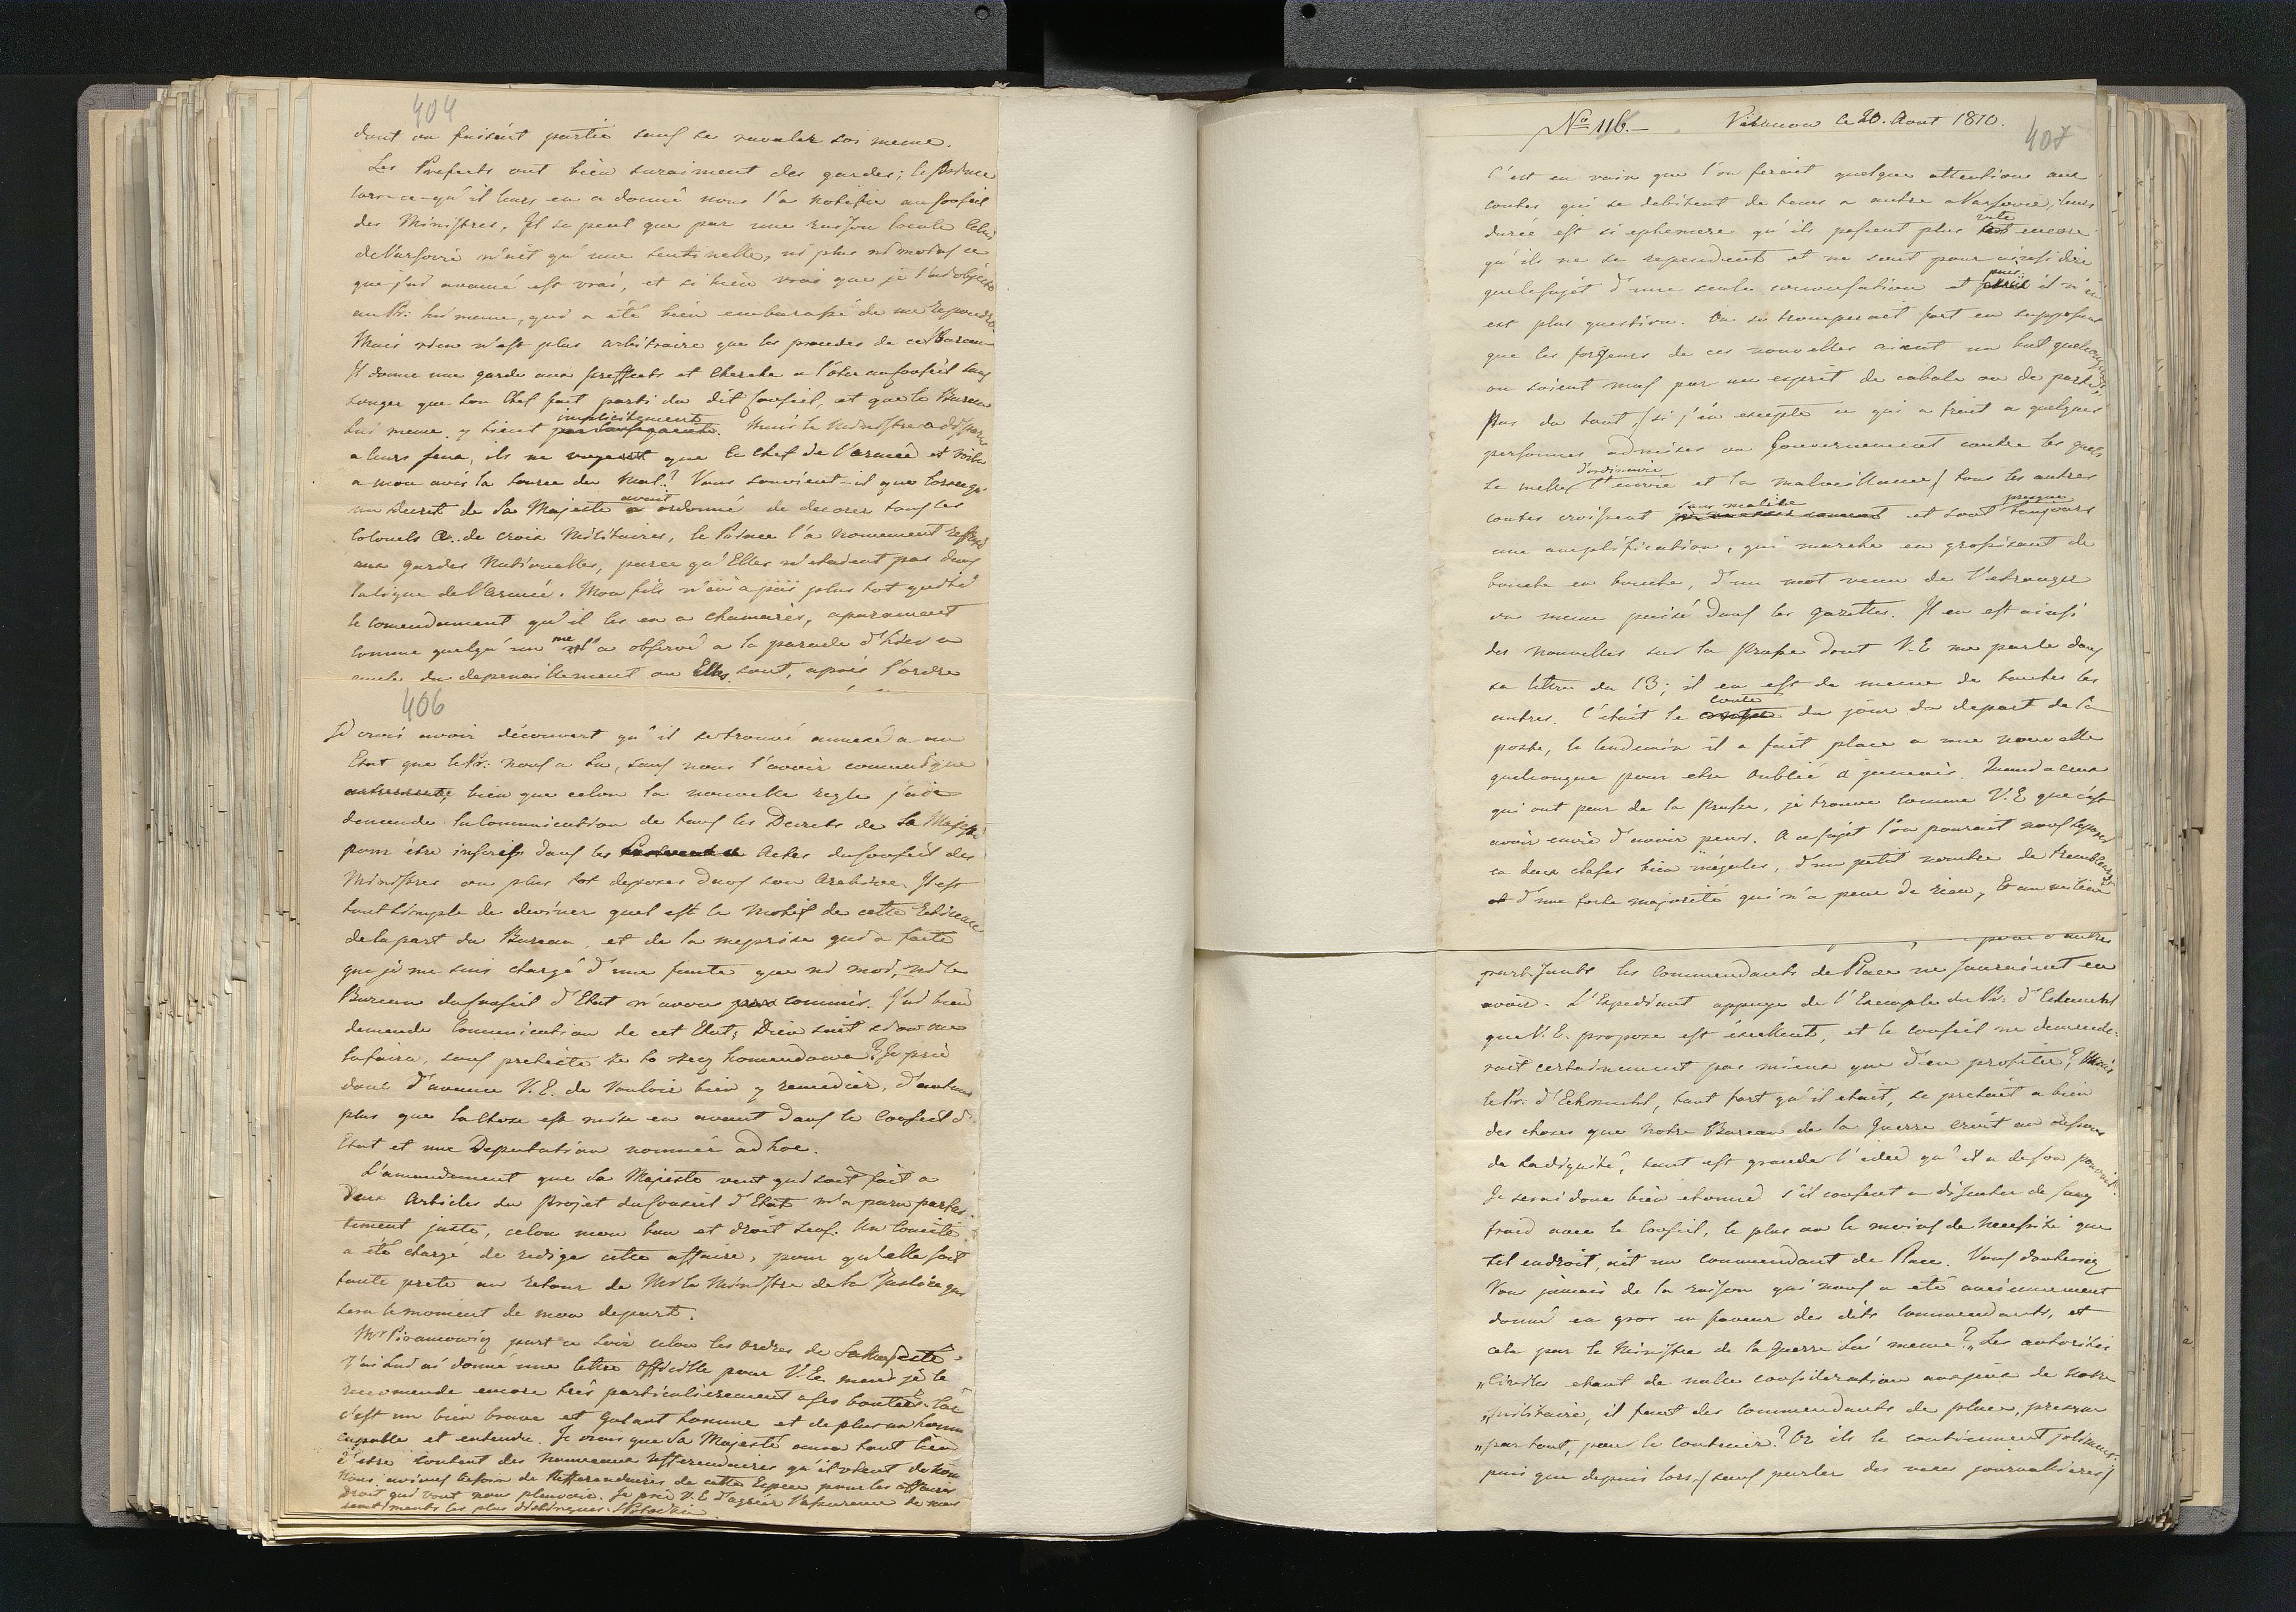 404
dont on faisait partie sans se ravaler soi meme.
Les Prefects ont bien suraiment des gardes; le Prince
lors-ce-qu'il leurs en a donné nous l'a notifié au Conseil
des Ministres, Il se peut que par une raison locale Celui
de Varsovie n'ait qu'une sentinelle, ni plus ni moins ce
que j'ai avancé est vrai, et si bien vrai que je l'ai objecté
au Pr: lui meme, qui a été bien embarassé de me repondre.
Mais rien n'est plus arbitraire que les procedes de ce Bureau
Il donne une garde aux preffects et cherche a l'oter au Conseil sans
songer que son Chef fait parti du dit Conseil, et que le Bureau
lui meme y tient implicitement. Mais le Ministre a disparu
a leurs yeux, ils ne voyent que le Chef de l'armée et voila
a mon avis la source du Mal? Vous souvient-il que lorsque
un decret de Sa Majesté avait ordonné de decorer tous les
Colonels de croix Militaires, le Prince l'a nomement refusé
aux gardes Nationalles, parce qu'Elles n'etaient pas dans
la ligne de l'armée. Mon fils n'en a pas plus tot quitté
le comendement qu'il les en a chamarés, aparament
comme quelqu'un me l'a observé a la parade d'hier en
suite du depenaillement ou Elles sont, après l'ordre
406
Je crois avoir découvert qu'il se trouve annexé a un
Etat que le Pr: nous a lu, sans nous l'avoir communiqué
bien que celon la nouvelle regle j'aie
demandé la Communication de tous les Decrets de Sa Majesté
pour être inscrits dans les Actes du Conseil des
Ministres ou plus tot deposes dans son Archive. Il est
tout simple de deviner quel est le Motif de cette Reticence
de la part du Bureau, et de la meprise qui a faite
que je me suis chargé d'une faute que ni moi, ni le
Bureau du Conseil d'Etat n'avons commis. J'ai bien
demandé comunication de cet Etat; Dieu sait si on me
la faira, sous pretexte że to rzecz komendowa? Je prie
donc d'avance V.E. de Vouloir bien y remedier, d'autant
plus que la chose est mise en avant dans le Conseil d'
Etat et une Deputation nommée ad hoc.
L'amendement que Sa Majesté veut qui soit fait a
deux Articles du Projet du Conseil d'Etat m'a paru parfai-
tement juste, celon mon bon et droit sens. Un Comité
a été chargé de rediger cette affaire, pour qu'elle soit
toute prete au retour de Mr le Ministre de la Justice qui
sera le moment de mon depart.
Mr Piramowicz part ce soir celon les ordres de Sa Majesté.
J'ai lui ai donné une lettre officielle pour V.E. mais je le
recomende encore très particulierement a ses bontées. Car
c'est un bien brave et galant homme et de plus un homme
capable et entendu. Je crois que Sa Majesté aura tout lieu
d'etre content des nouveaux refferendaires qu'il vient de nom
Nous avions besoin de Refferendaires de cette Espece pour les affaires
droit qui vont nous pleuvoir. Je prie V.E. d'agréer l'assurance de mes
sentiments les plus distingués. SPotocki
No 116.— Vilanow le 20. Aout 1810.
407
C'est en vain que l'on ferait quelque attention aux
contes qui se debitent de tems a autre a Varsovie, leurs
durée est si ephemere qu'ils passent plus vite encore
qu'ils ne se rependent et ne sont pour ainsi dire
que le sujet d'une seule conversation et puis il n'en
est plus question. On se tromperait fort en supposant
que les forgeurs de ces nouvelles aient un but quelconque,
ou soient mus par un esprit de cabale ou de parti,
Pas du tout, (si j'en excepte ce qui a trait a quelques
personnes admises au Gouvernement contre les quels
se mellent d'ordinaire l'envie et la malveillance) tous les autres
contes croissent sans malice et sont presque toujours
une amplification, qui marche en grossissant de
bouche en bouche, d'un mot venu de l'etranger
ou meme puisé dans les gazettes. Il en est ainsi
des nouvelles sur la Prusse dont V.E me parle dans
sa lettre du 13; il en est de meme de toutes les
autres. C'était le conte du jour du depart de la
poste, le lendemain il a fait place a une nouvelle
quelconque pour etre oublié a jamais. Quand a ceux
qui ont peur de la Prusse, je trouve comme V.E que c'est
avoir envie d'avoir peur. A ce sujet l'on pourait nous separer
en deux classes bien inégales, d'un petit nombre de trembleurs
et d'une forte majorité qui n'a peur de rien, Et au milieu
pour d'autres
partisants les Commendants de Place ne sauraient en
avoir. L'Expediant appuyé de l'Exemple du Pr: d'Eckmuhl
que V.E. propose est éxcellent, et le Conseil ne demande-
rait certainement pas mieux que d'en profiter? Mais
le Pr: d'Eckmuhl, tant fort qu'il etait, se pretait a bien
des choses que Notre Bureau de la Guerre croit au dessous
de sa dignité, tant est grande l'idée qu'il a de son pouvoir.
Je serai donc bien etonné s'il consent a discuter de sang
froid avec le Conseil, le plus ou le moins de necessité que
tel endroit, ait un commendant de Place. Vous douteriez
Vous jamais de la raison qui nous a été anciennement
donné en gros en faveur des dits Commendants, et
cela par le Ministre de la Guerre lui meme? „Les autorités
„Civiles etant de nulle consideration aux yeux de notre
„militaire, il faut des Commendants de place, presque
„partout, pour le contenir? Or ils le contiennent joliment.
puis que depuis lors, (sans parler des rixes journalieres)